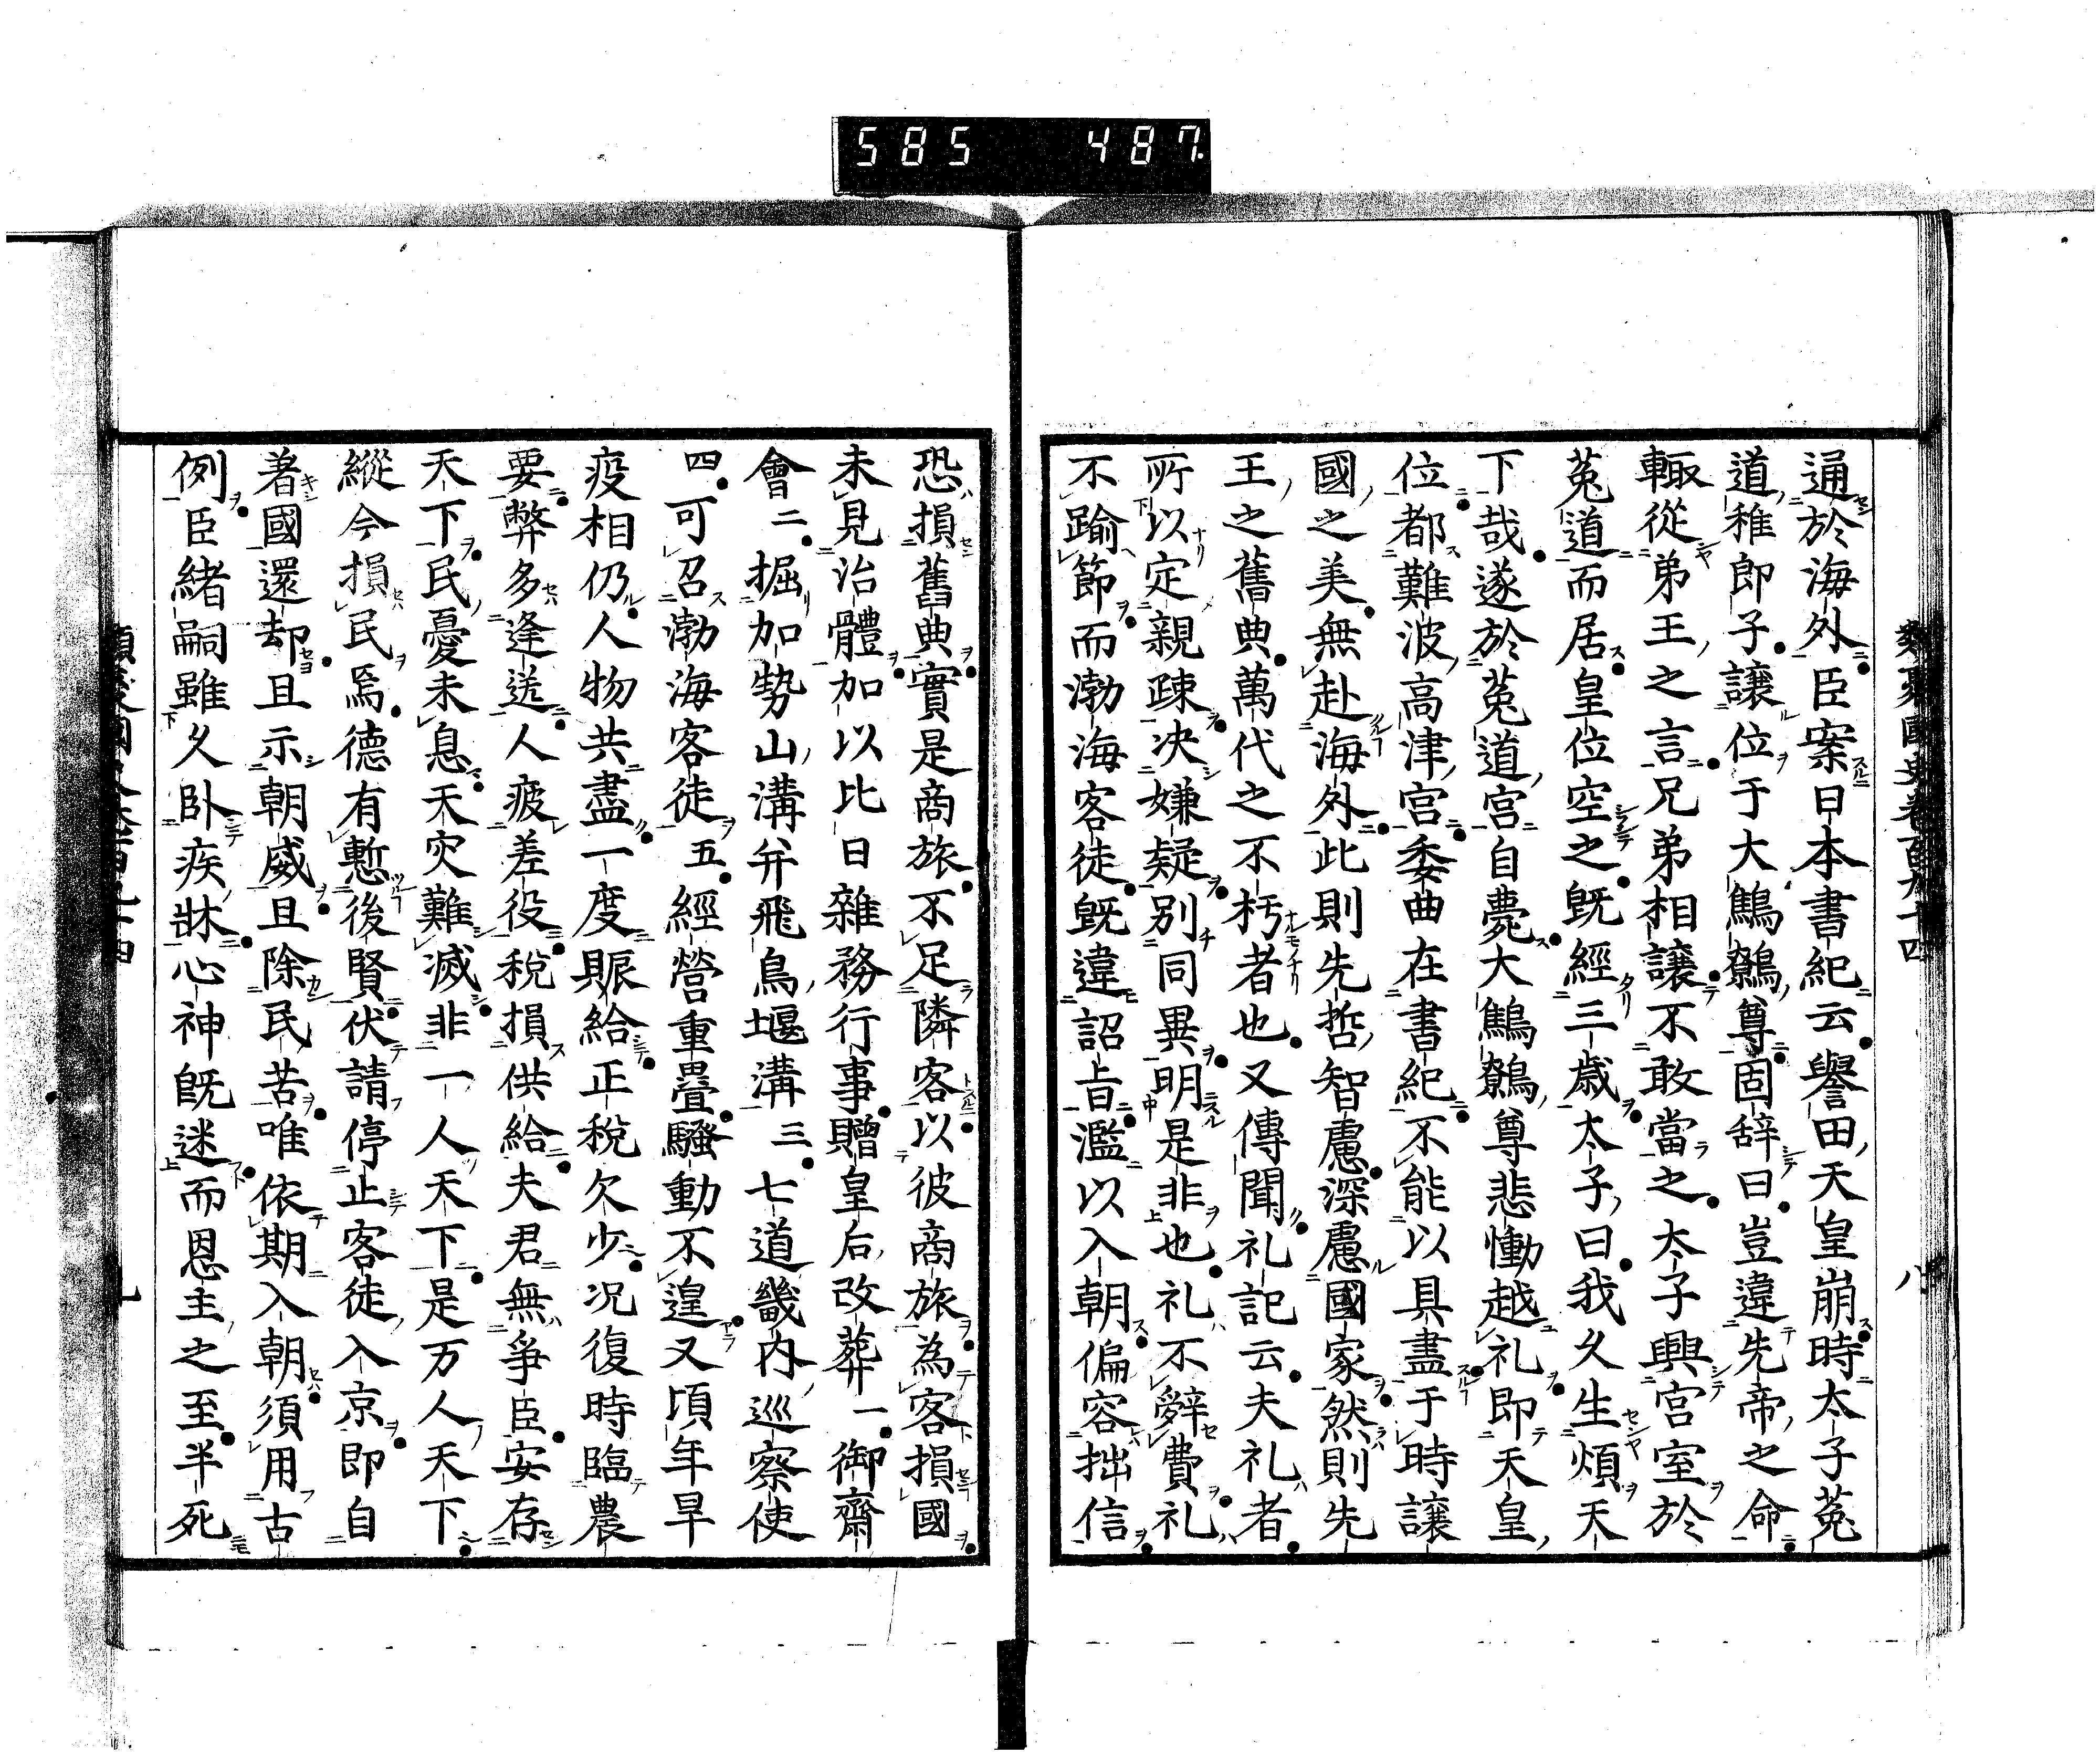 585 487.
類聚國史卷百九十四 八
通於海外臣案日本書紀云譽田天皇崩時太子菟
道稚郎子讓位于大鷦鷯尊固辞曰豈違先帝之命
輙從弟王之言兄弟相讓不敢當之太子興宮室於
菟道而居皇位空之既經三歳太子曰我久生煩天
下哉遂於菟道宮自薨大鷦鷯尊悲慟越礼即天皇
位都難波高津宮委曲在書紀不能以具盡于時讓
國之美無赴海外此則先哲智慮深慮國家然則先
王之舊典萬代之不朽者也又傳聞礼記云夫礼者
所以定親疎决嫌疑別同異明是非也礼不辭費礼
不踰節而渤海客徒既違詔旨濫以入朝偏容拙信
恐損舊典實是商旅不足隣客以彼商旅為客損國
未見治體加以比日雜務行事贈皇后改葬一御齋
會二掘加勢山溝并飛鳥堰溝三七道畿内巡察使
四可召渤海客徒五經營重疊騷動不遑又頃年旱
疫相仍人物共盡一度賑給正税欠少况復時臨農
要弊多逢送人疲差役税損供給夫君無爭臣安存
天下民憂未息天灾難滅非一人天下是万人天下
縱今損民焉德有慙後賢伏請停止客徒入京即自
著國還却且示朝威且除民苦唯依期入朝須用古
例臣緒嗣雖久卧疾牀心神既迷而恩主之至半死
類聚國史卷百九十四 九